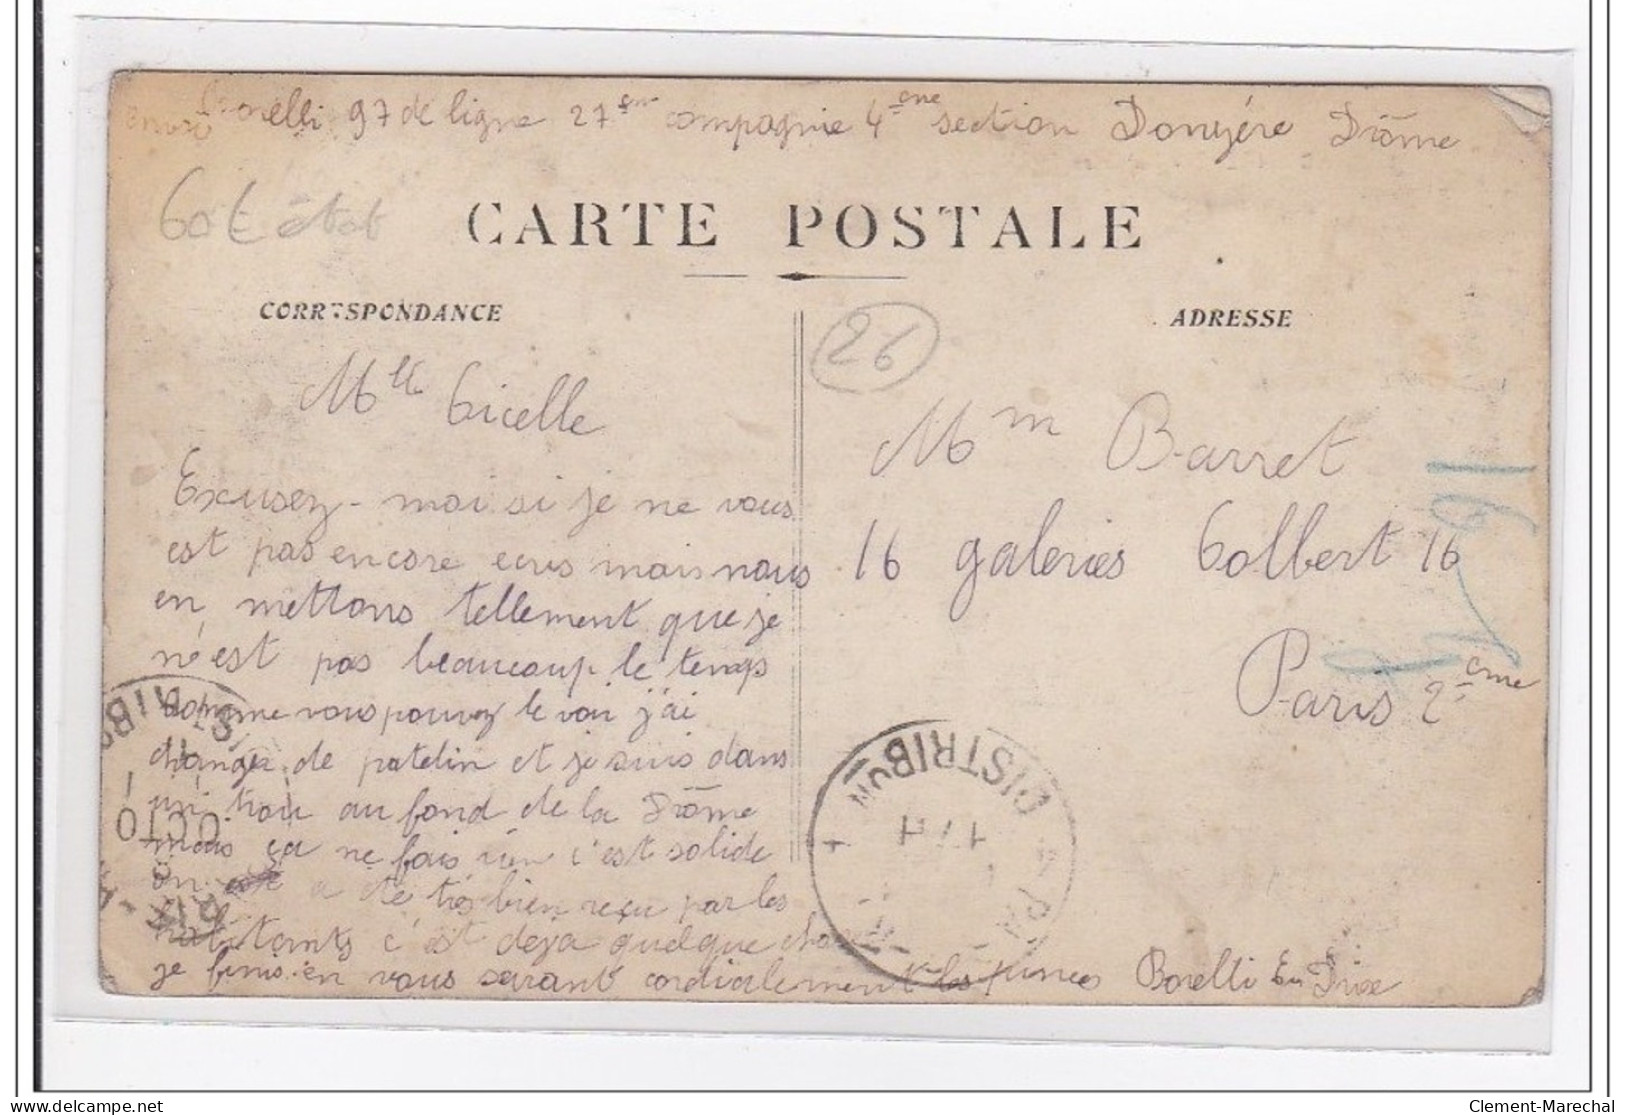 envoi Borelli 97 de ligne 27ème compagnie 4ème section Donzére Drôme
60€ état
CARTE POSTALE
CORRESPONDANCE
ADRESSE
26
Mlle Gicelle
Excusez-moi si je ne vous
est pas encore ecris mais nous
en mettons tellement que je
n'é est pas beaucoup le temps
comme vous pouvez le voir j'ai
changer de patelin et je suis dans
un trou au fond de la Drôme
mais ça ne fais rien c'est solide
on a été très bien reçu par les
habitants c'est deja quelque chose
je finis en vous serant cordialement les pinces Borelli Eu Drise
Mm Barret
16 galeries Colbert 16
Paris 2ème
16
DISTRIBON
OCTO
DISTRIB
Clement-Marechal